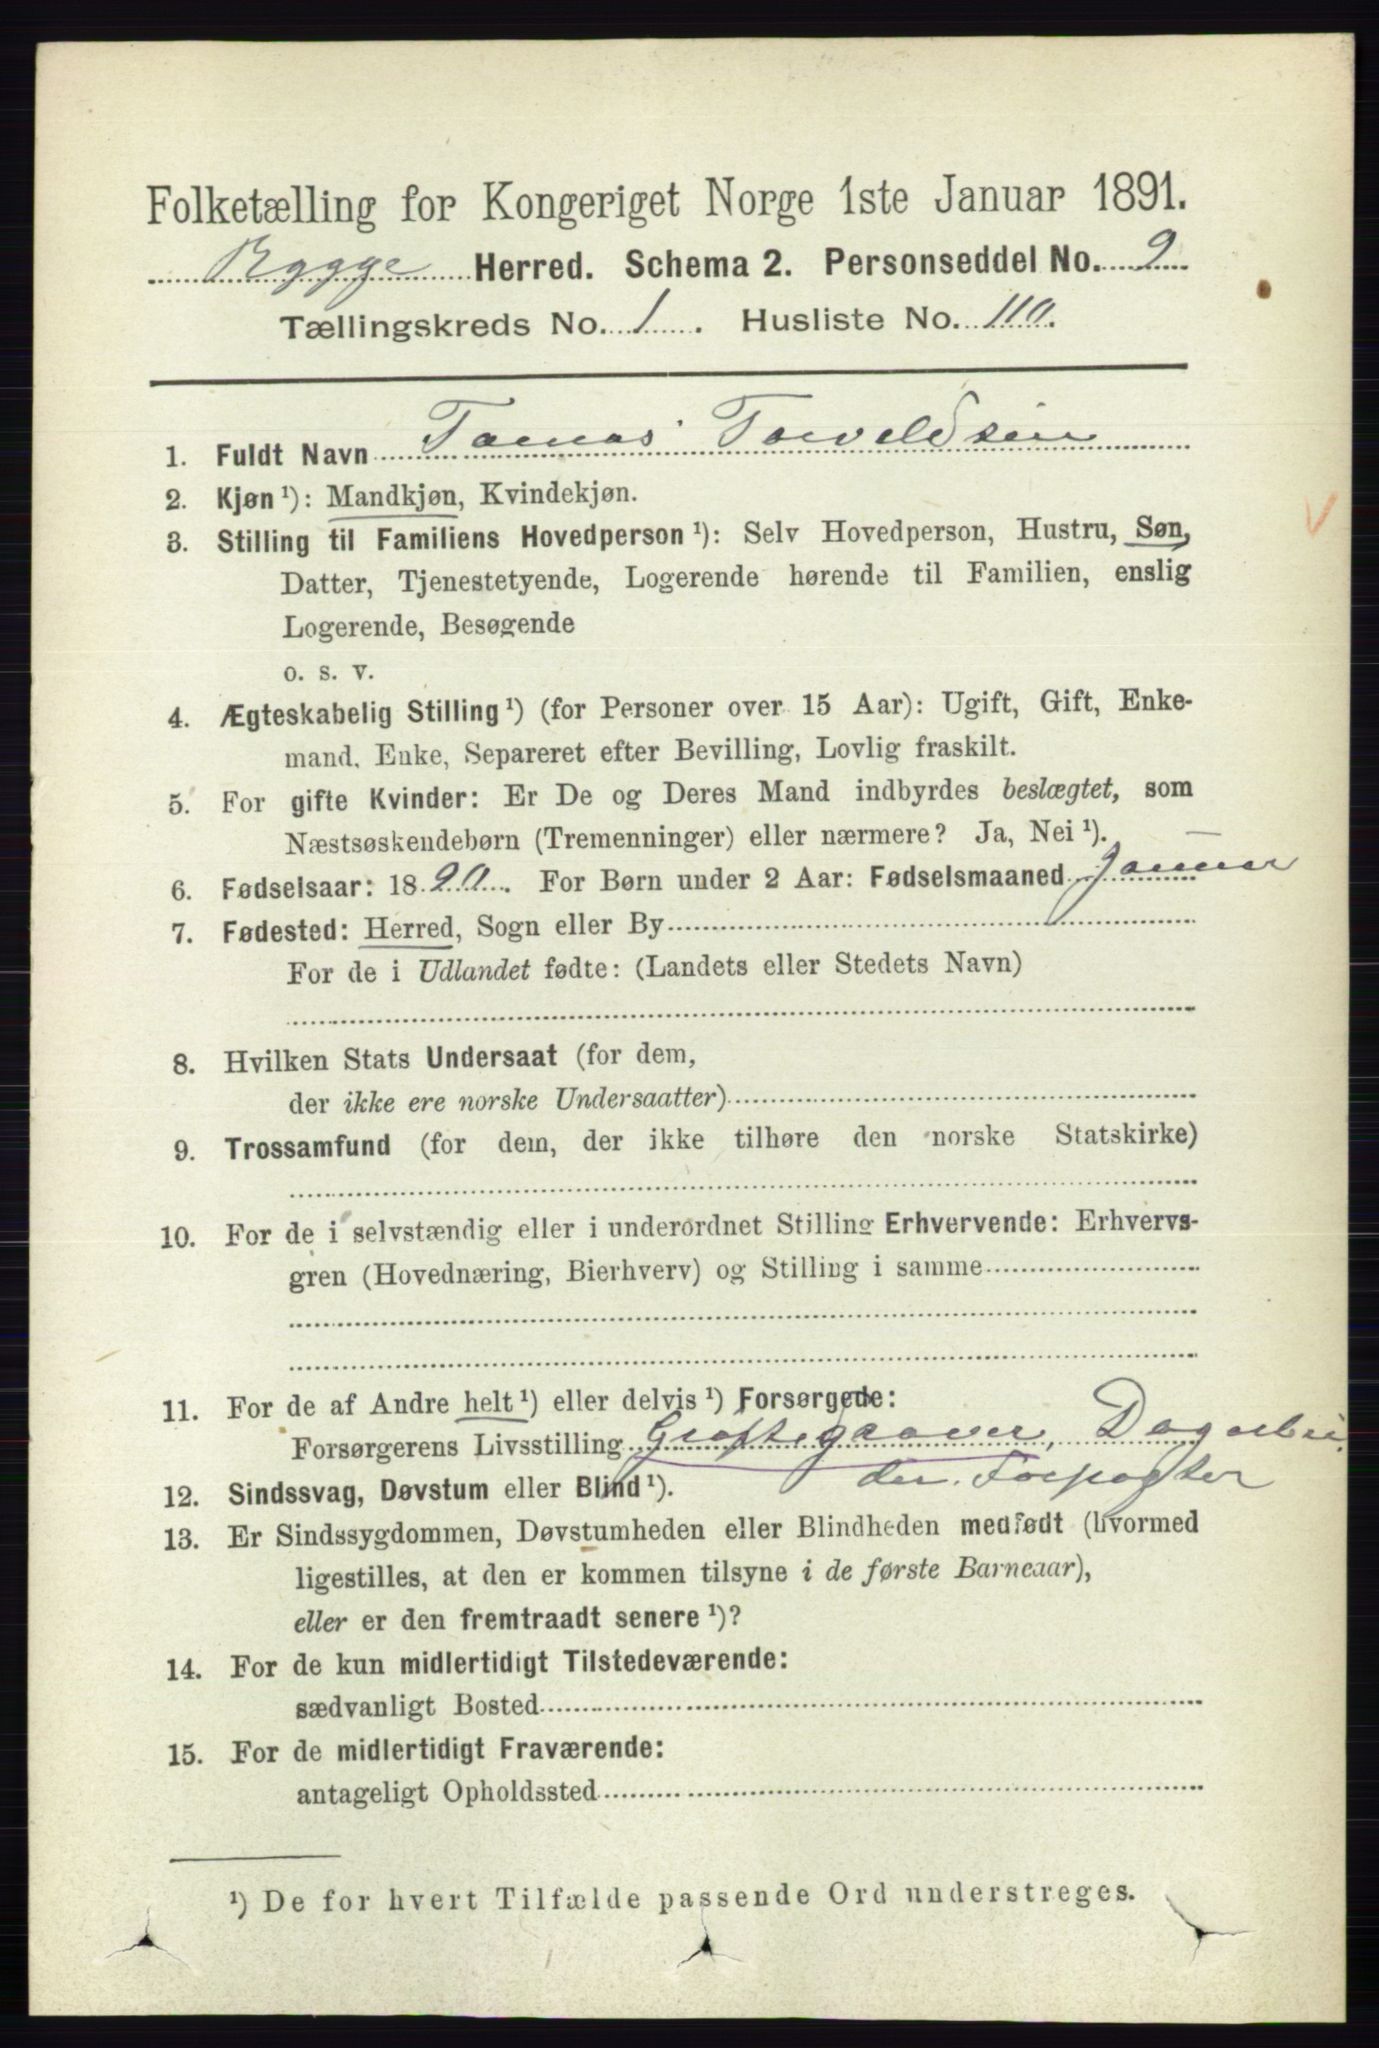 Folketælling for Kongeriget Norge 1ste Januar 1891.
Rygge Herred. Schema 2. Personseddel No. 9
Tællingskreds No. 1. Husliste No. 110.
1. Fuldt Navn Tomas Torveldsen
2. Kjøn ¹): Mandkjøn, Kvindekjøn.
3. Stilling til Familiens Hovedperson ¹): Selv Hovedperson, Hustru, Søn,
Datter, Tjenestetyende, Logerende hørende til Familien, enslig
Logerende, Besøgende
o. s. v.
4. Ægteskabelig Stilling ¹) (for Personer over 15 Aar): Ugift, Gift, Enke-
mand, Enke, Separeret efter Bevilling, Lovlig fraskilt.
5. For gifte Kvinder: Er De og Deres Mand indbyrdes beslægtet, som
Næstsøskendebørn (Tremenninger) eller nærmere? Ja, Nei ¹).
6. Fødselsaar: 1890. For Børn under 2 Aar: Fødselsmaaned Januar
7. Fødested: Herred, Sogn eller By
For de i Udlandet fødte: (Landets eller Stedets Navn)
8. Hvilken Stats Undersaat (for dem,
der ikke ere norske Undersaatter)
9. Trossamfund (for dem, der ikke tilhøre den norske Statskirke)
10. For de i selvstændig eller i underordnet Stilling Erhvervende: Erhvervs-
gren (Hovednæring, Bierhverv) og Stilling i samme
11. For de af Andre helt ¹) eller delvis ¹) Forsørgede:
Forsørgerens Livsstilling Grøftegraver, Dagarbei
der. Forpagter
12. Sindssvag, Døvstum eller Blind ¹).
13. Er Sindssygdommen, Døvstumheden eller Blindheden medfødt (hvormed
ligestilles, at den er kommen tilsyne i de første Barneaar),
eller er den fremtraadt senere ¹)?
14. For de kun midlertidigt Tilstedeværende:
sædvanligt Bosted
15. For de midlertidigt Fraværende:
antageligt Opholdssted
¹) De for hvert Tilfælde passende Ord understreges.